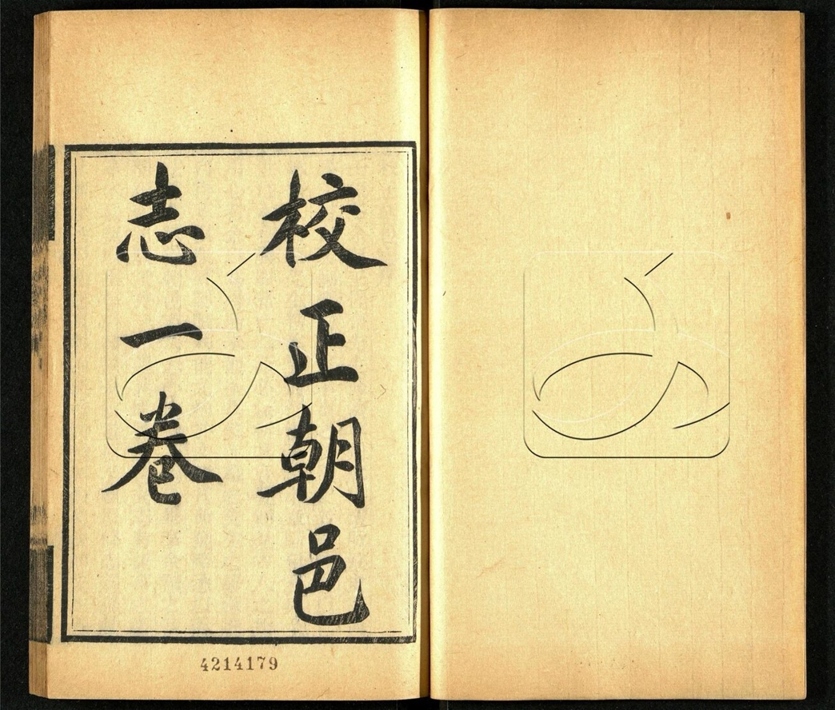 校正朝邑
志一卷
4214179